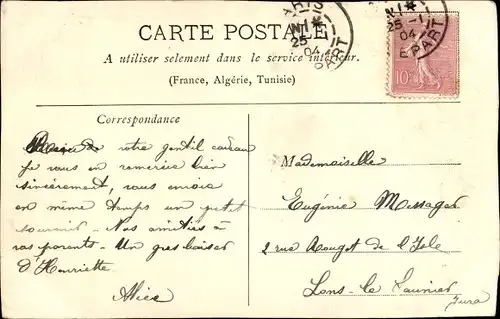 CARTE POSTALE
A utiliser selement dans le service intérieur.
(France, Algérie, Tunisie)
PARIS
25 -1
04
DEPART
25 -1
04
DEPART
10
Correspondance
de votre gentil cadeau
je vous en remercie bien
sincèrement, vous envoie
en même temps un petit
souvenir - Nos amitiés à
vos parents - Un gros baiser
d'Henriette
Alice
Mademoiselle
Eugénie Messager
2 rue Rouget de l'Isle
Lons-le Saunier
Jura